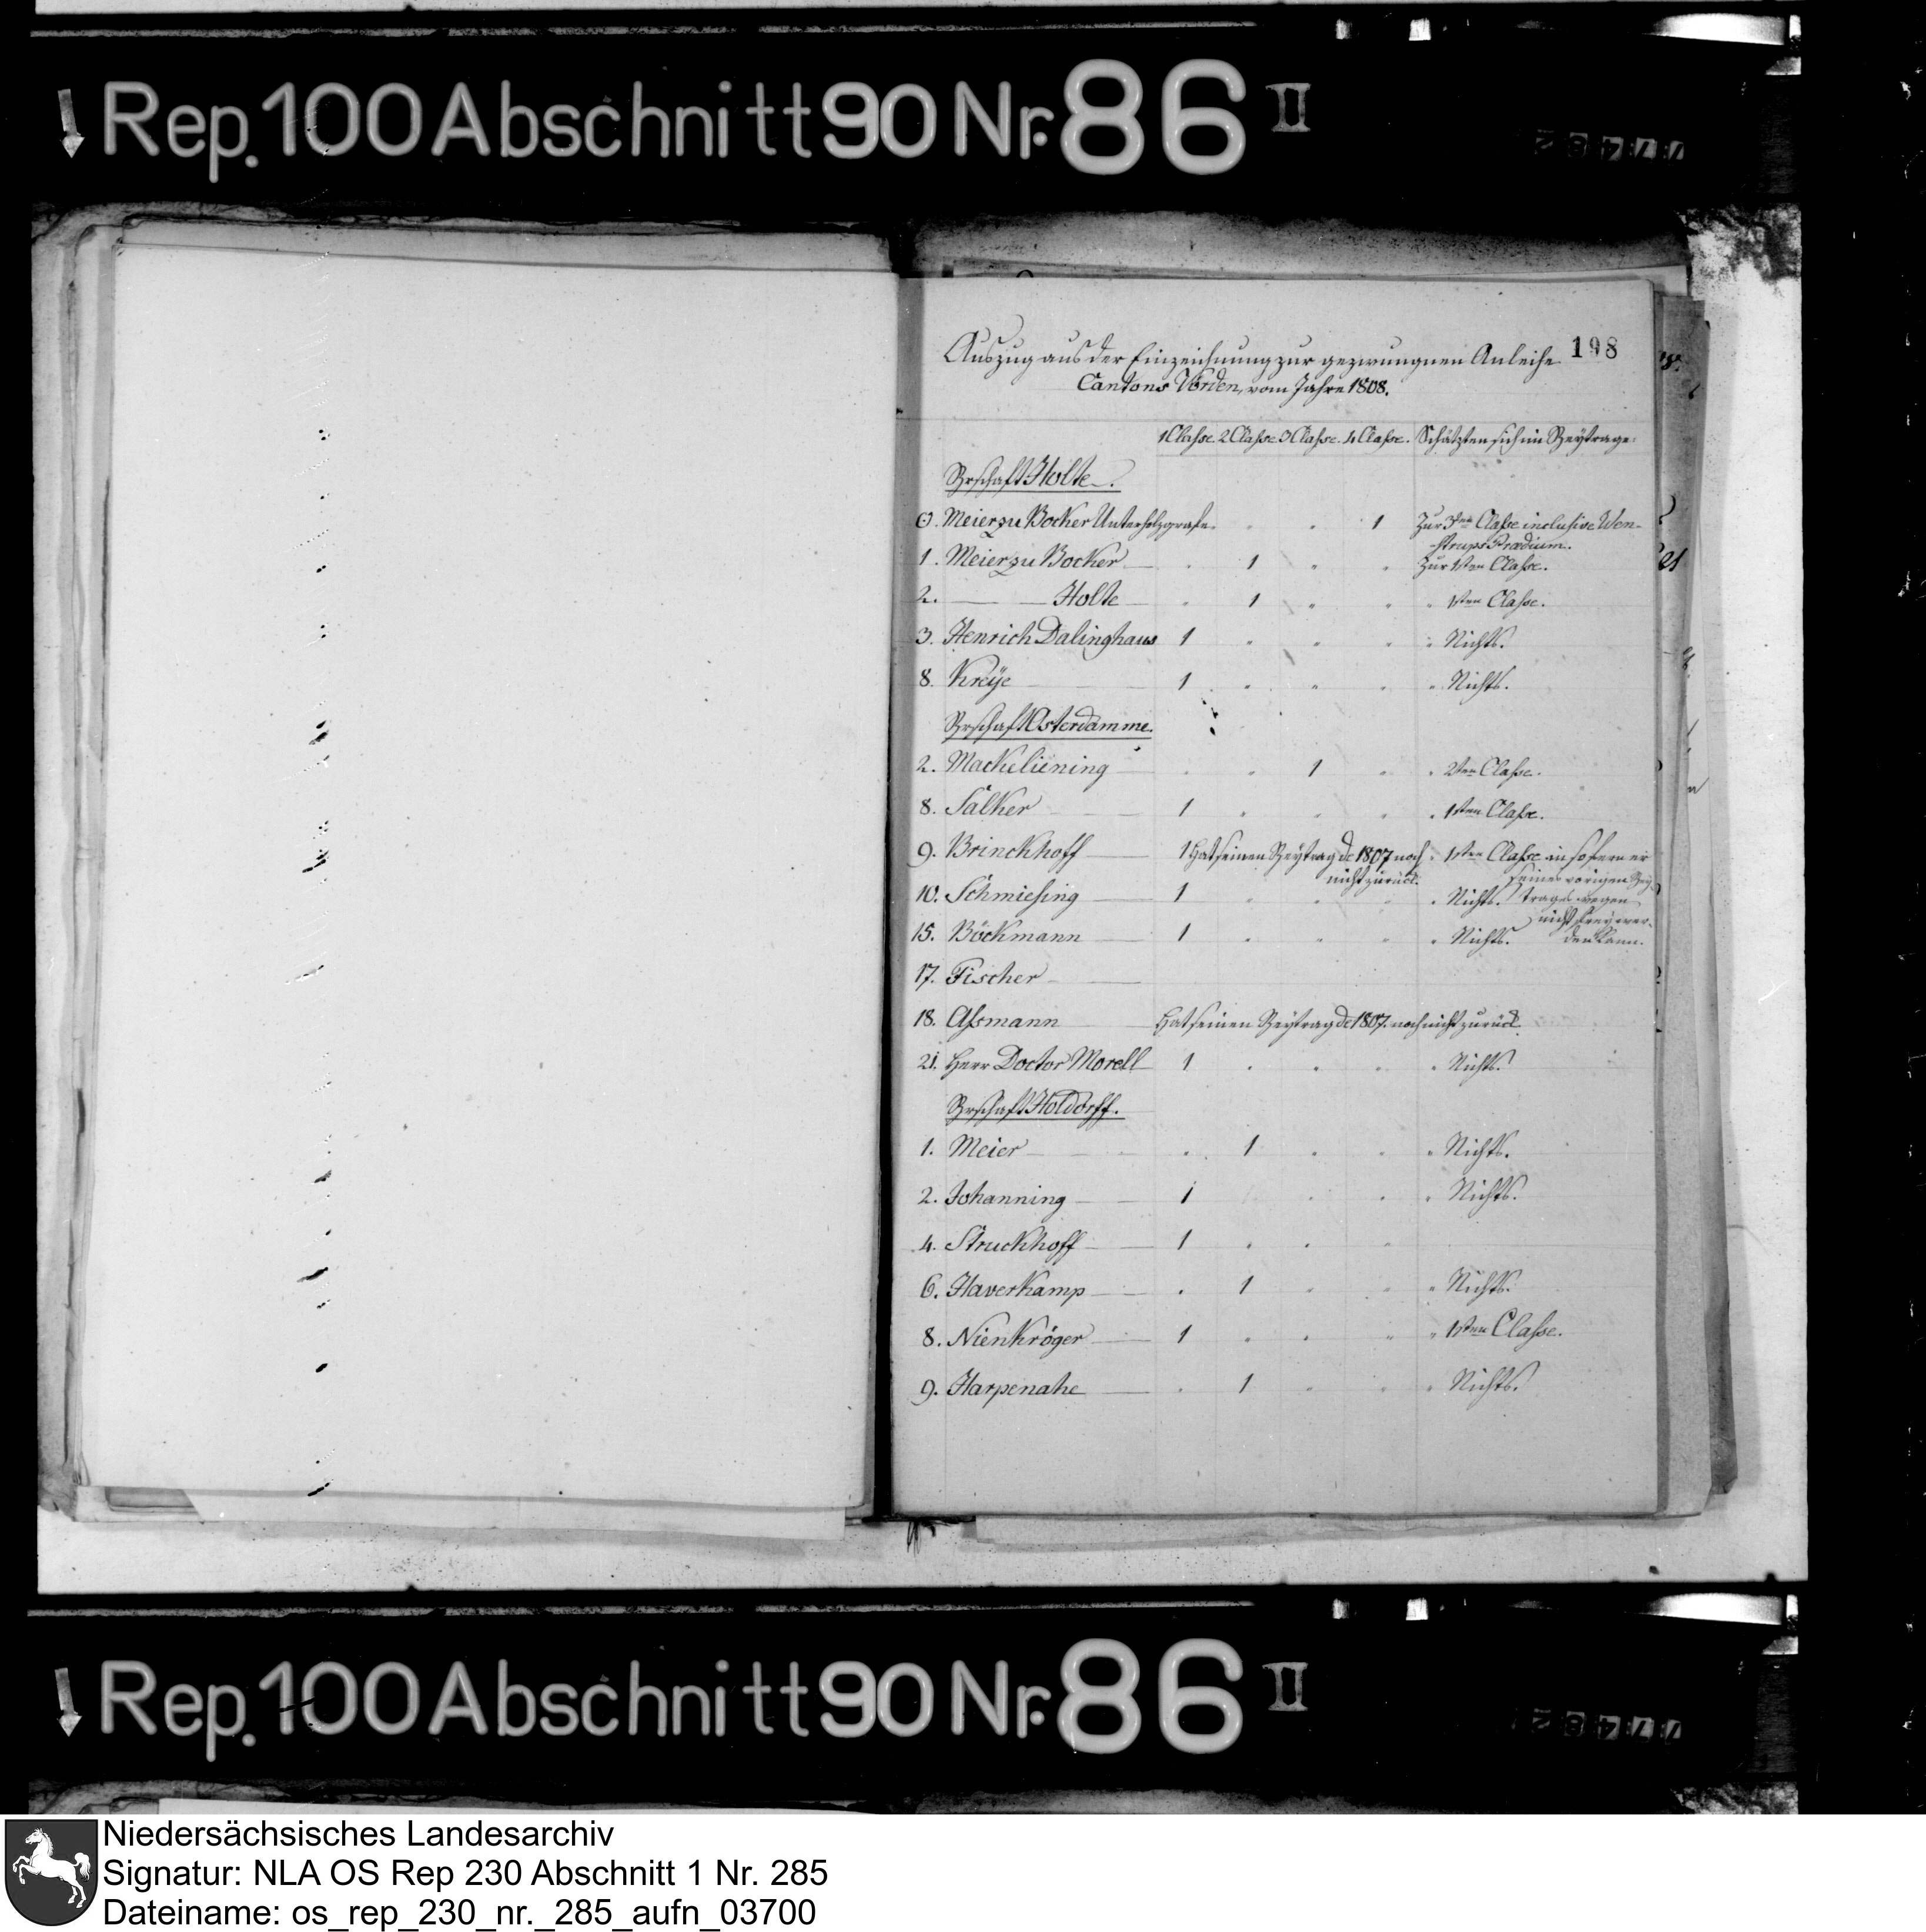 Rep. 100 Abschnitt 90 Nr. 86 II
198
Auszug aus der Einzeichnung zur gezwungnen Anleihe
Cantons Vörden, vom Jahre 1808.
1 Classe. 2 Classe 3 Classe. 4 Classe. Schätzten sich im Beytrage:
Brschaft Holte.
0. Meier zu Bocker Unterholzgrafe. " " 1 Zur 3ten Classe inclusive Wen-
strups Prædium.
1. Meier zu Bocker — " 1 " " Zur 1sten Classe.
2. — — Holte — " 1 " " " 1sten Classe.
3. Henrich Dalinghaus 1 " " " " Nichts.
8. Kreÿe — 1 " " " " Nichts.
Brschaft Osterdamme.
2. Mackeliening — " " 1 " " 2ten Classe.
8. Sälker — 1 " " " " 1sten Classe.
9. Brinckhoff — 1 Hat seinen Beytrag de 1807 noch " 1sten Classe in sofern er
nicht zurück. seines vorigen Bey-
10. Schmiesing — 1 " " " " Nichts. trags wegen
nicht frey wer-
15. Böckmann — 1 " " " " Nichts. den kann.
17. Fischer —
18. Assmann Hat seinen Beytrag de 1807. noch nicht zurück.
21. Herr Doctor Morell 1 " " " " Nichts.
Brschaft Holdorff.
1. Meier — " 1 " " " Nichts.
2. Johanning — 1 " " " Nichts.
4. Struckhoff — 1 " " "
6. Haverkamp — " 1 " " " Nichts.
8. Nienkröger — 1 " " " " 1sten Classe.
9. Harpenahe — " 1 " " " Nichts.
Rep. 100 Abschnitt 90 Nr. 86 II
Niedersächsisches Landesarchiv
Signatur: NLA OS Rep 230 Abschnitt 1 Nr. 285
Dateiname: os_rep_230_nr._285_aufn_03700